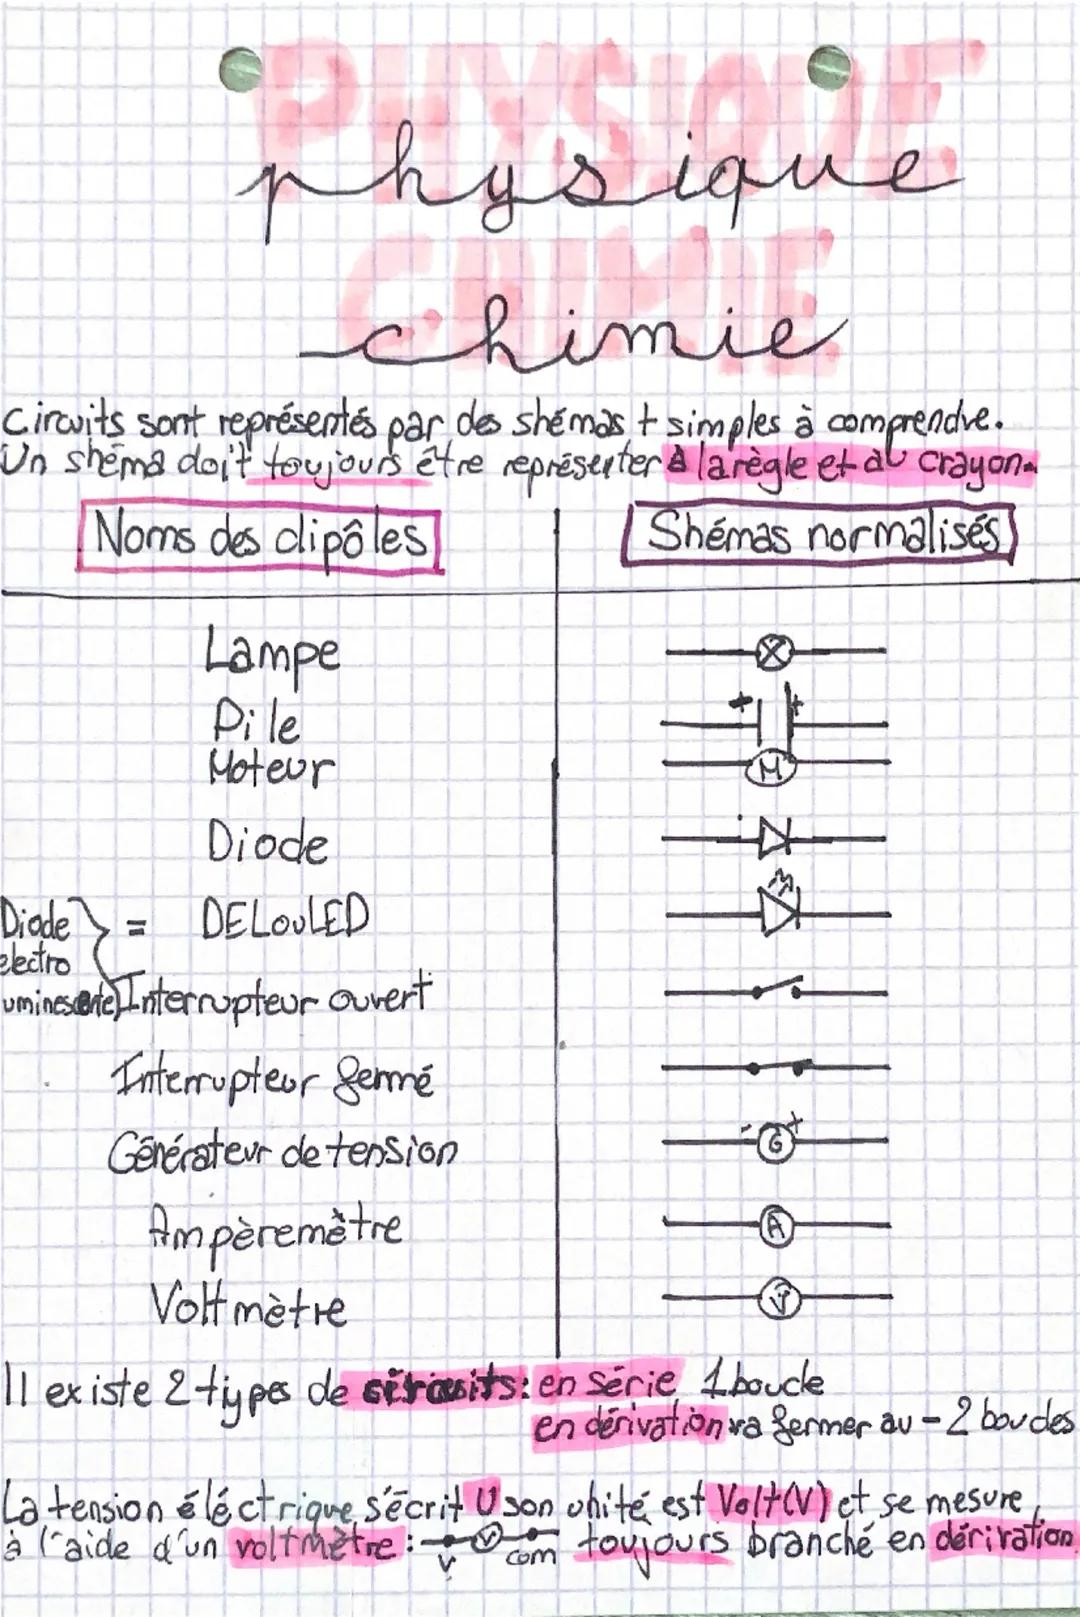 PHYSIQUE
physique
CHIMIE
chimie
Circuits sont représentés par des shémas + simples à comprendre.
Un shéma doit toujours être représenter à la règle et au crayon.
Noms des dipôles
Shémas normalisés
Lampe
Pile
+ +
Moteur
M
Diode
Diode electro uminescente } = DEL ou LED
Interrupteur ouvert
Interrupteur fermé
Générateur de tension
- G +
Ampèremètre
A
Voltmètre
V
Il existe 2 types de circuits: en série 1 boucle
en dérivation va fermer au - 2 boucles
La tension éléctrique s'écrit U son unité est Volt (V) et se mesure
à l'aide d'un voltmètre : V V com toujours branché en dérivation